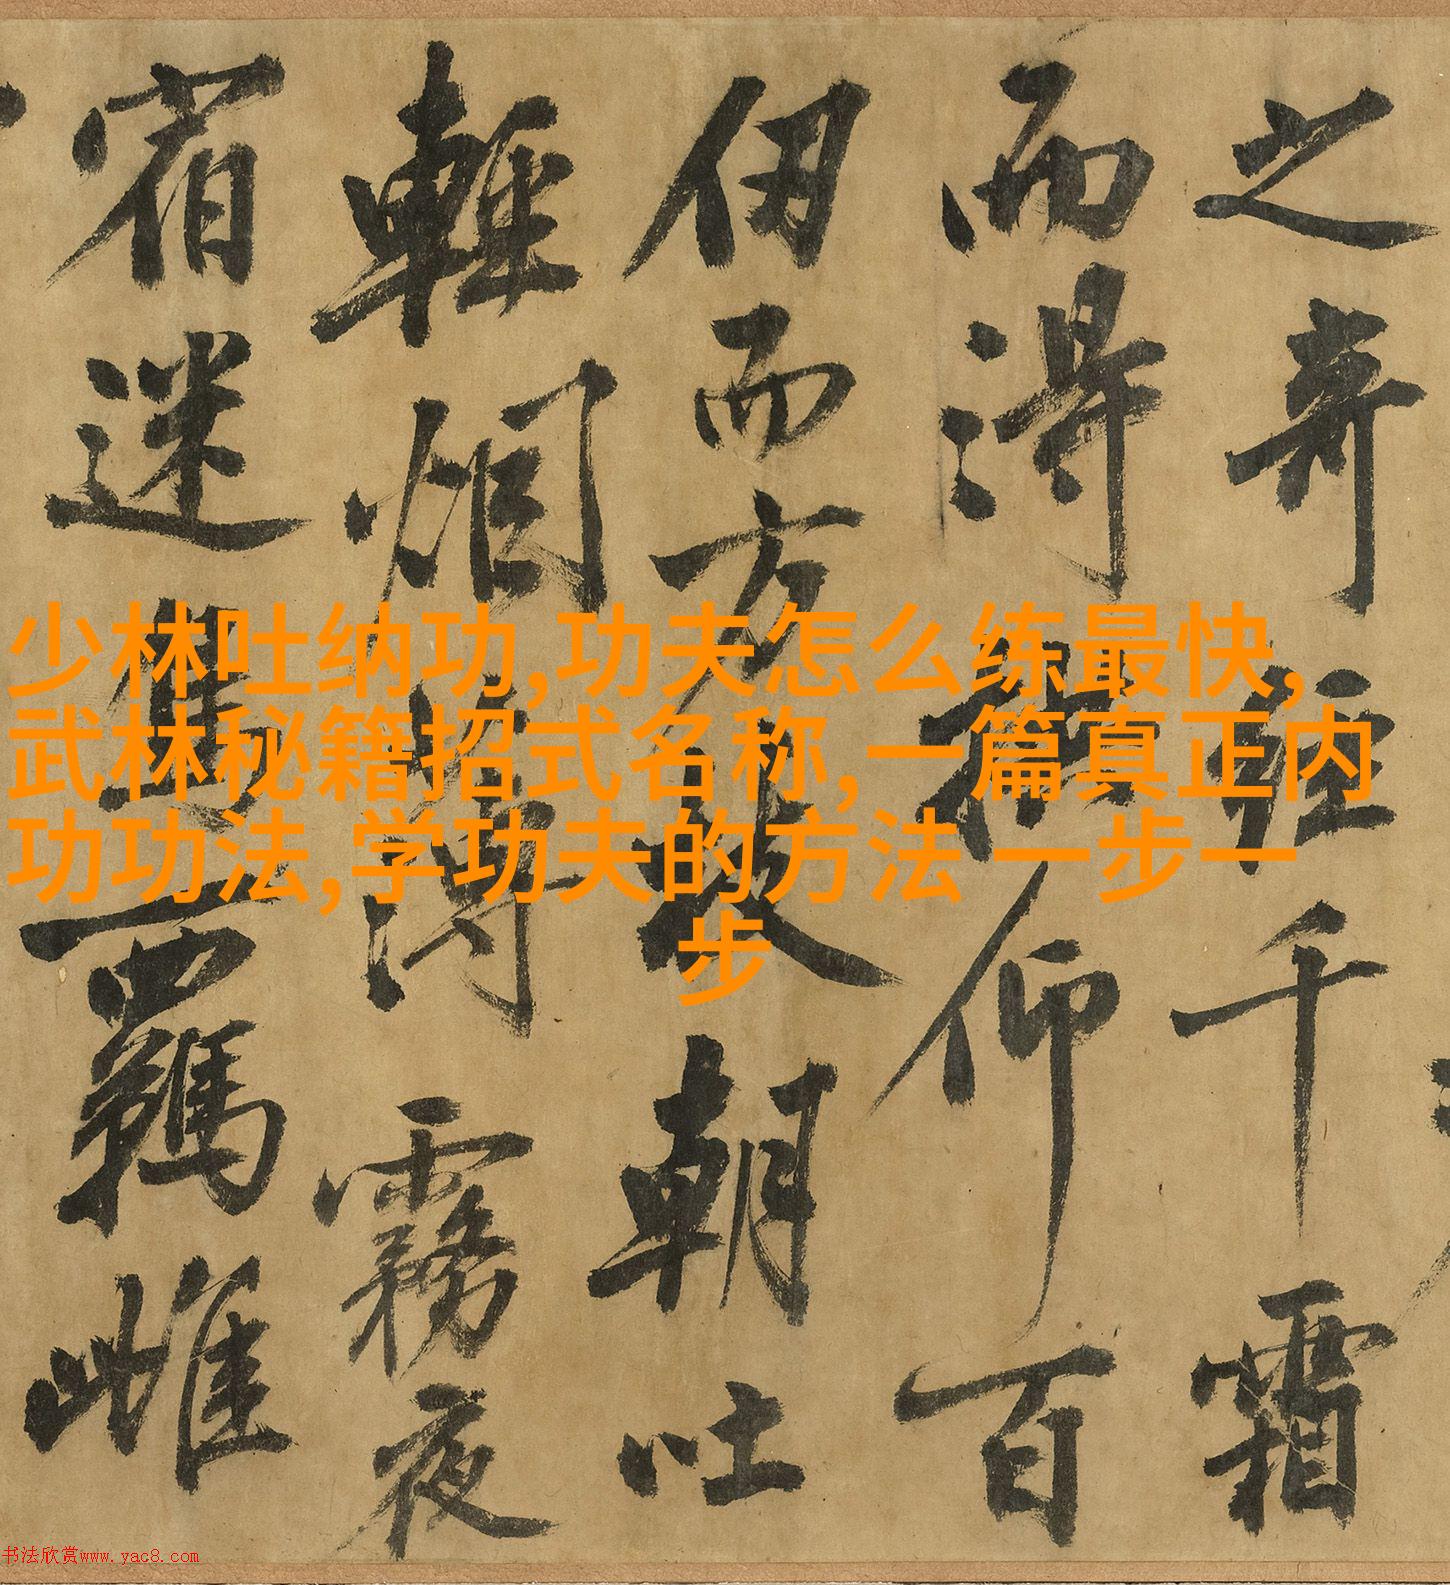 之奇經千霜
而得仰百
仞而方枝朝吐
輕烟薄霧夜
宿迷鳥羈雌
少林吐纳功,功夫怎么练最快,
武林秘籍招式名称,一篇真正内
功功法,学功夫的方法 一步一
步
书法欣赏www.yac8.com